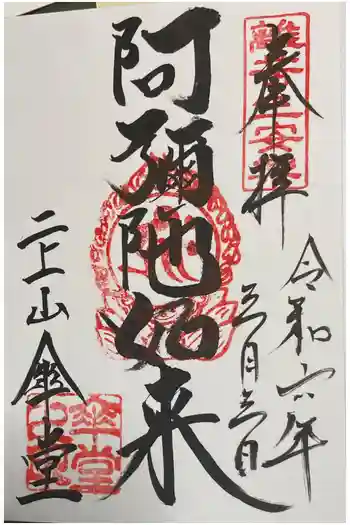 奉拝
令和六年
三月三日
阿彌陀如来
二上山
傘堂
傘堂